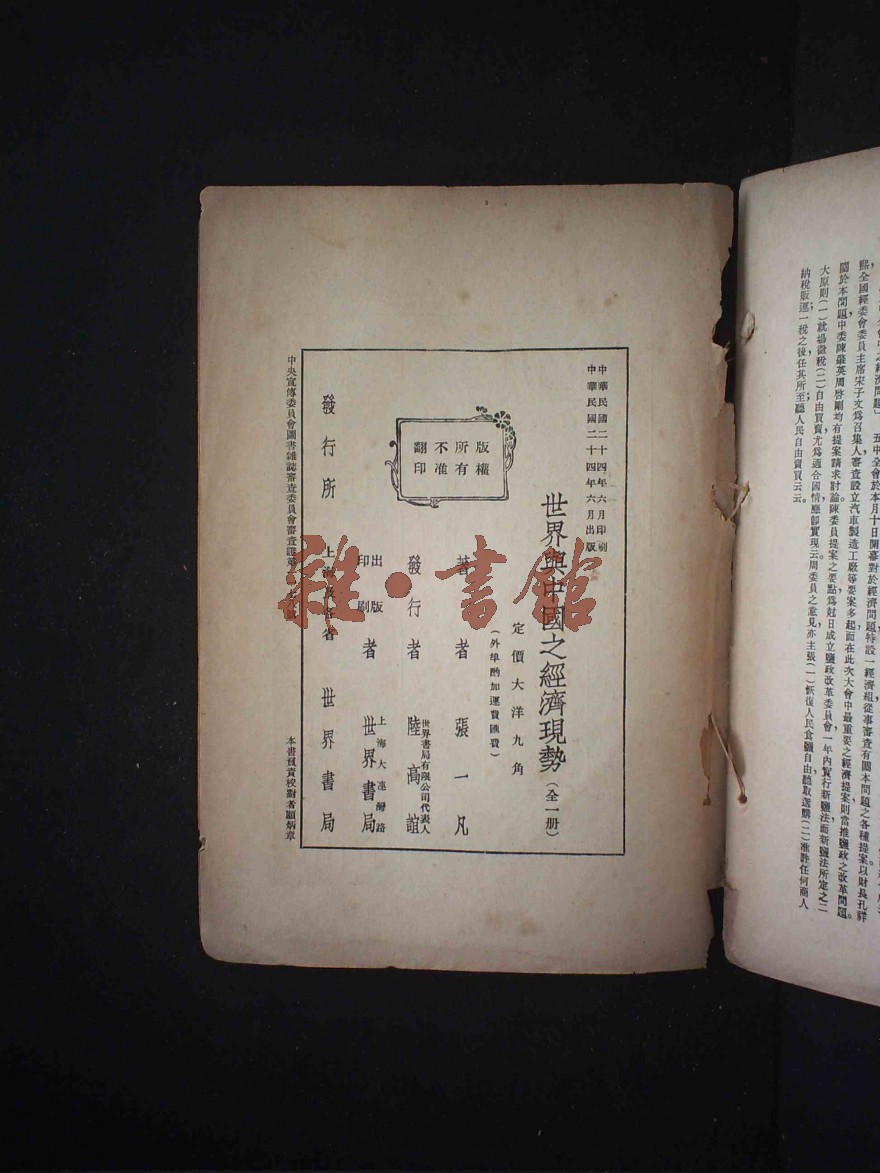 熙全國經委會委員主席宋子文爲召集人審查設立汽車製造工廠等要案多起而在此次大會中最重要之經濟提案則當推鹽政之改革問題。
關於本問題中委陳肇英周啓剛均有提案請求討論陳委員提案之要點爲尅日成立鹽政改革委員會一年內實行新鹽法而新鹽法所定之二
大原則(一)就場徵稅(二)自由買賣尤爲適合國情應卽實現云周委員之意見亦主張(一)恢復人民食鹽自由聽取選購(二)准許任何商人
納稅販運一稅之後任其所至聽人民自由賣買云云。
中華民國二十四年六月印刷
中華民國二十四年六月出版
世界與中國之經濟現勢(全一册)
定價大洋九角
(外埠酌加運費匯費)
版權
所有
不准
翻印
著者 張一凡
發行者 世界書局有限公司代表人
陸高誼
出版
印刷
者 上海大連灣路
世界書局
發行所 上海及各省 世界書局
中央宣傳委員會圖書雜誌審查委員會審查證第
本書負責校對者顧炳章
雜·書館